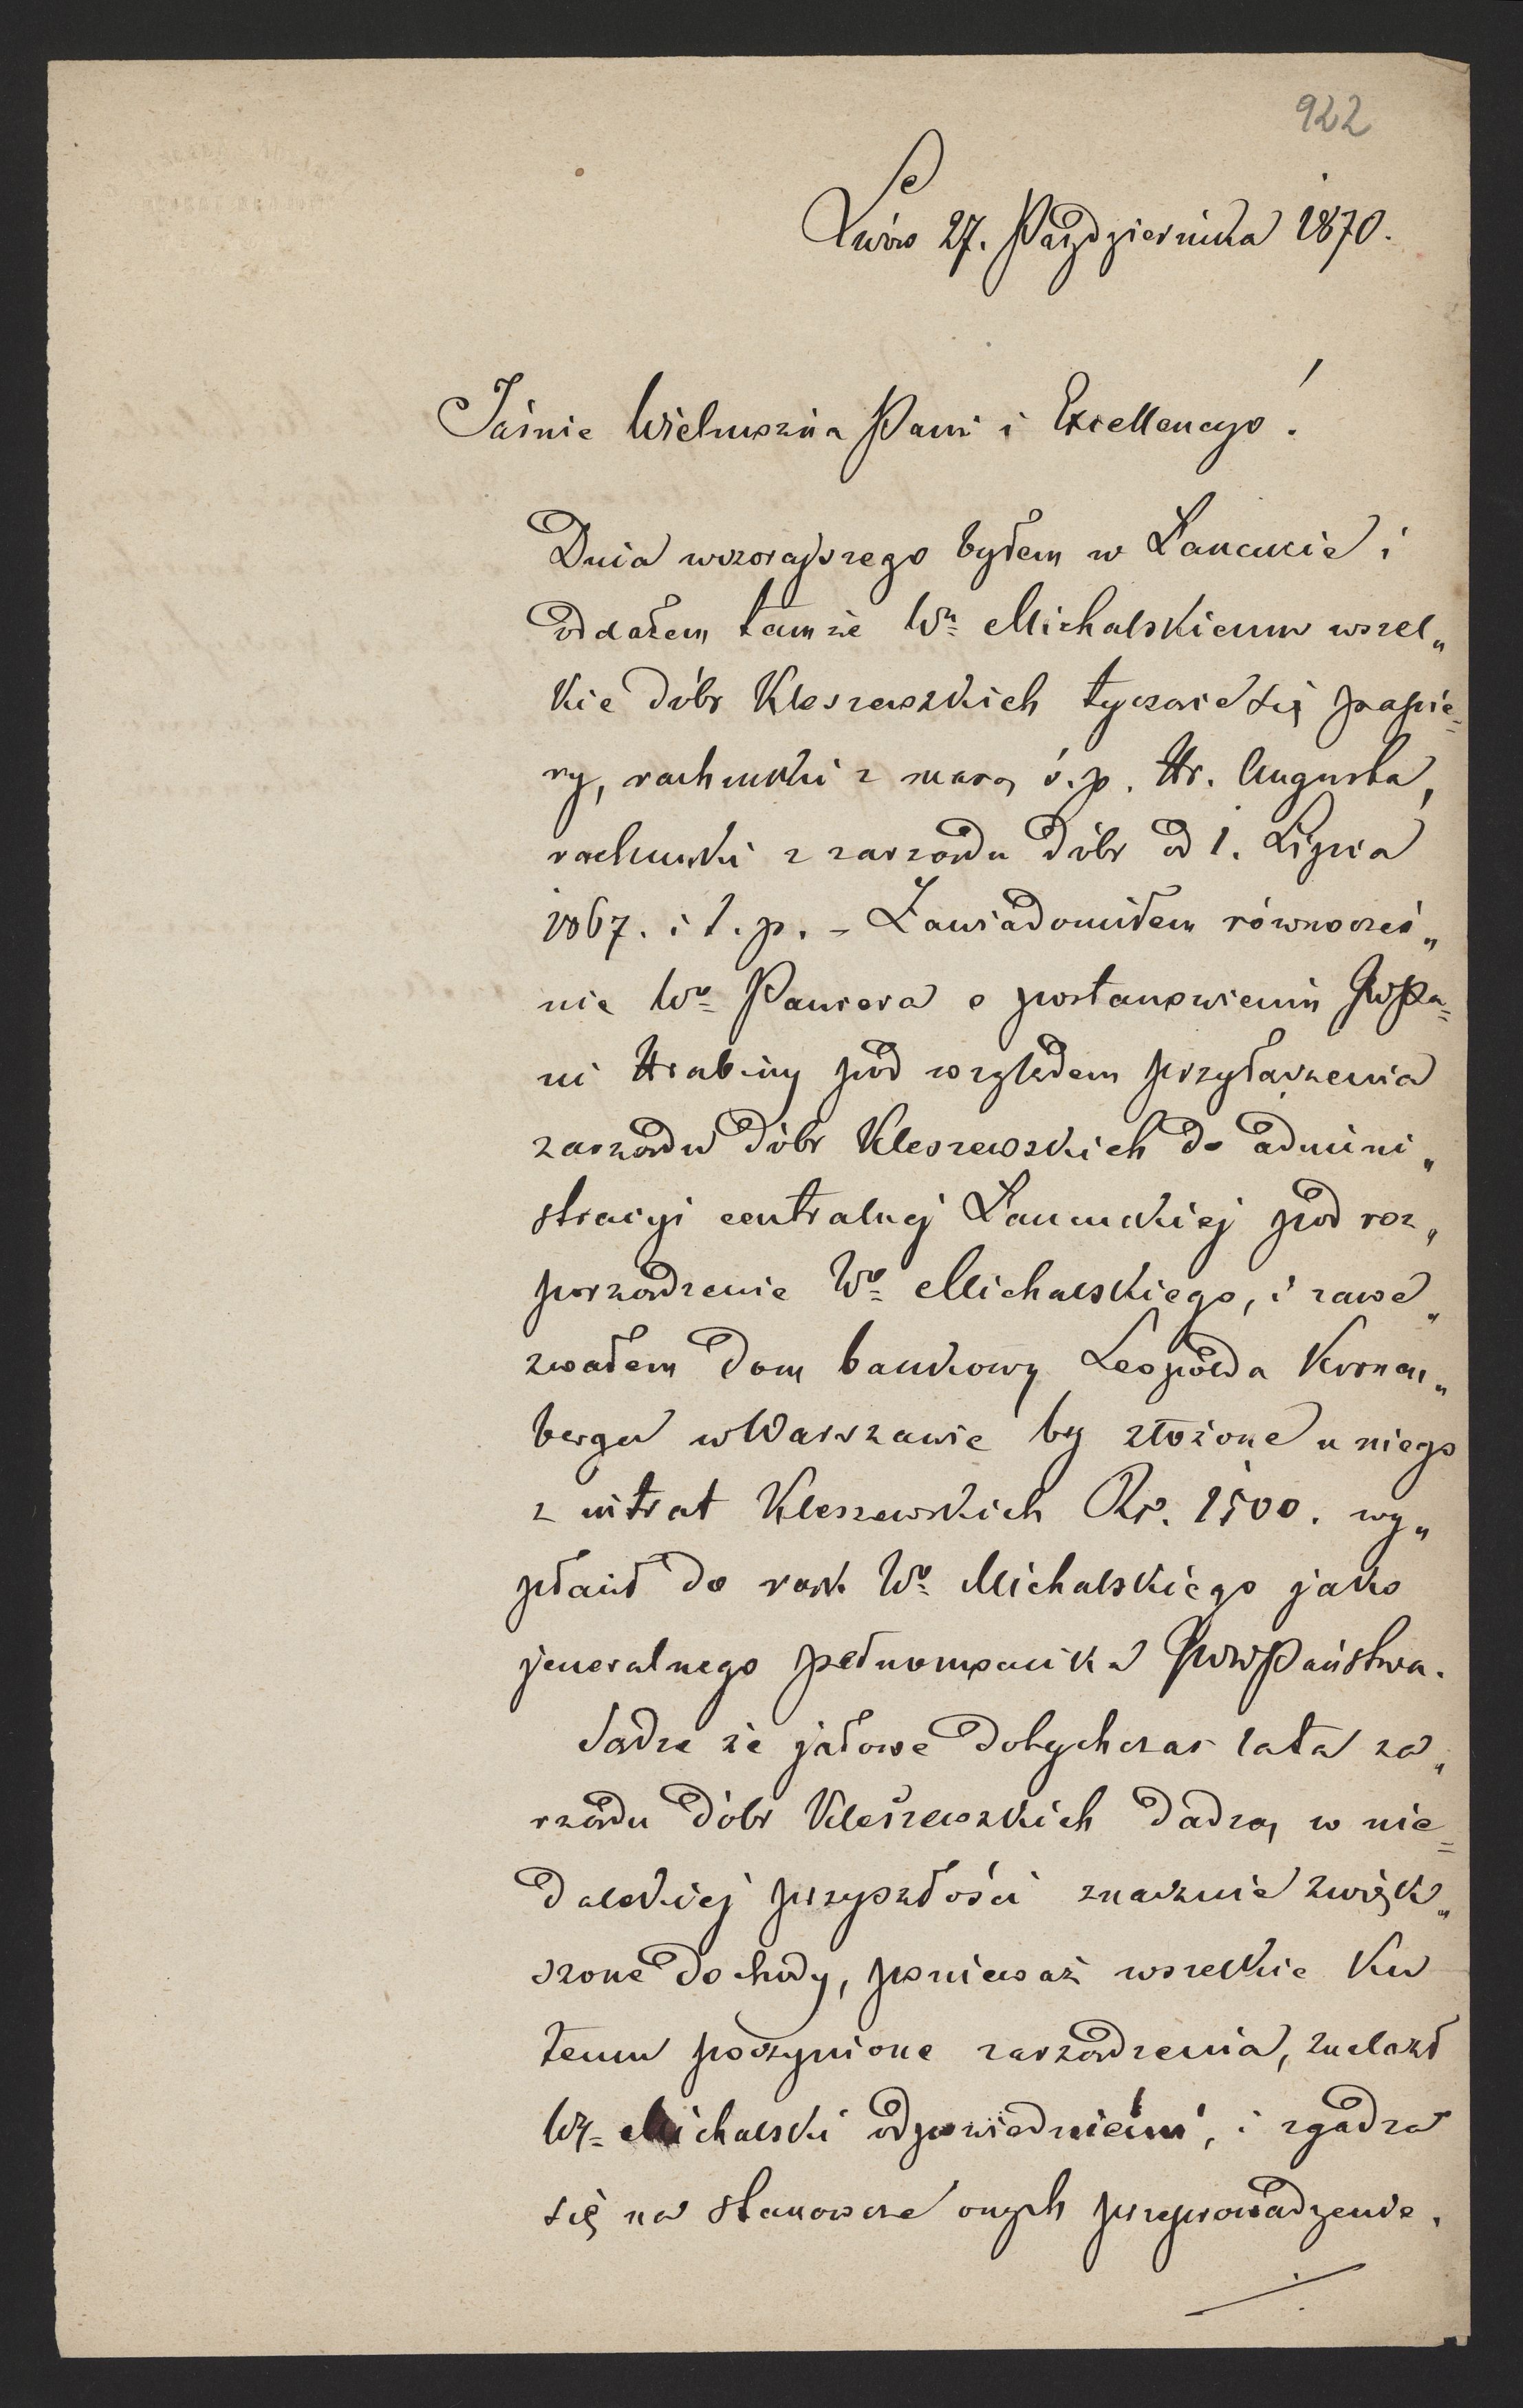 922
Lwów 27. Października 1870.
Jaśnie Wielmożna Pani i Excellencyo!
Dnia wczorajszego byłem w Łańcucie i
oddałem tamże Wu Michalskiemu wszel„
kie dóbr Kleszewskich tyczące się papie=
ry, rachunki z masą ś. p. Hr. Augusta,
rachunki z zarządu dóbr od 1. Lipca
1867. i t. p. – Zawiadomiłem równocześ„
nie Wo o postanowieniu JWPa=
ni Hrabiny pod względem przyłączenia
zarządu dóbr Kleszewskich do admini„
stracyi centralnej Łańcuckiej pod roz„
porządzenie Wo Michalskiego, i zawe„
zwałem dom bankowy Leopolda Kronen„
berga w Warszawie by złożone u niego
z intrat Kleszewskich Rs. 1500. wy„
płacił do rąk Wo Michalskiego jako
jeneralnego pełnomocnika JWWPaństwa.
Sądzę że jałowe dotychczas lata za„
rządu dóbr Kleszewskich dadzą w nie=
dalekiej przyszłości znacznie zwięk„
szone dochody, ponieważ wszelkie ku
temu poczynione zarządzenia, znalazł
Wy= Michalski odpowiedniemi, i zgadza
się na stanowcze onych przeprowadzenie.
./.